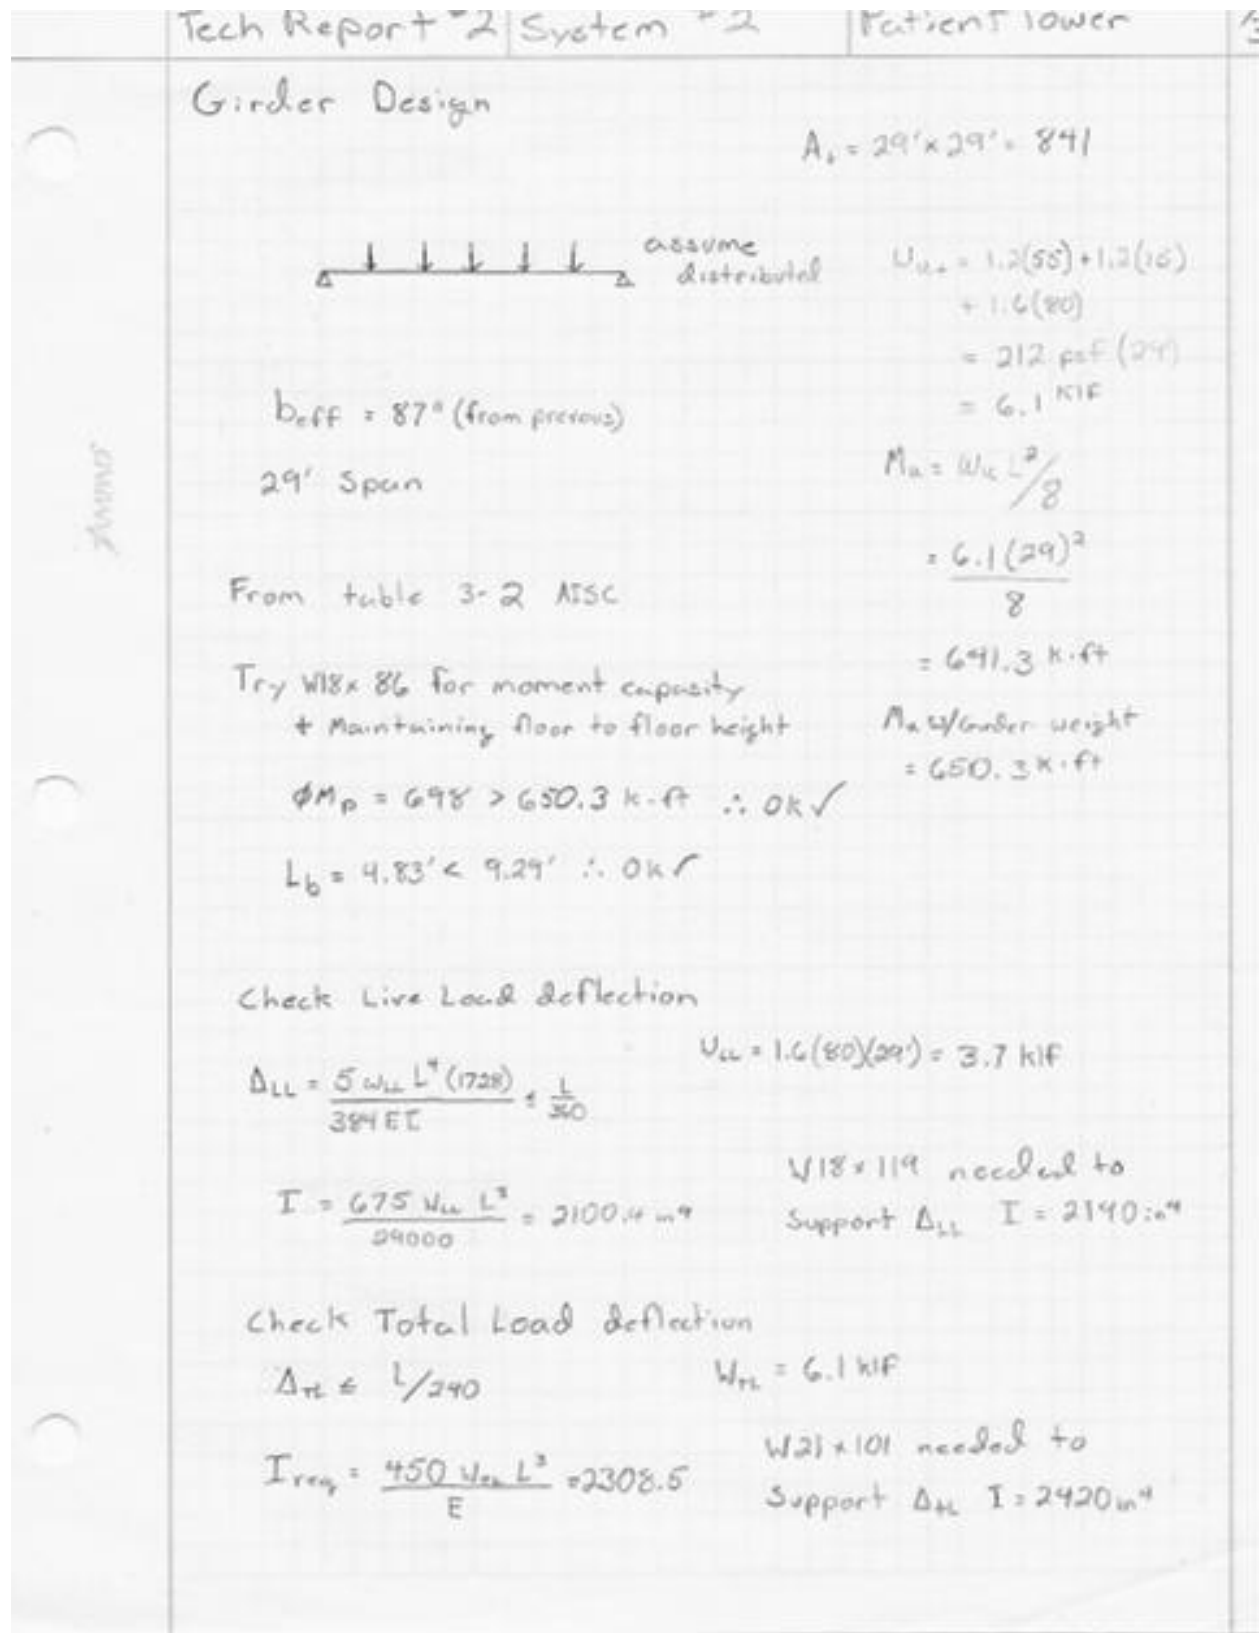 Tech Report #2 System #2 Patient Tower
Girder Design
At = 29'x29' = 841
assume
distributed
= 1.2(55)+1.2(15)
+ 1.6(80)
= 212 psf (29')
= 6.1 klf
beff = 87" (from prevous)
29' Span
Mu = wu L²/8
= 6.1(29)²
8
= 641.3 k·ft
From table 3-2 AISC
Try W18x 86 for moment capasity
+ Maintaining floor to floor height
Mu w/Girder weight
= 650.3 k·ft
ϕMp = 698 > 650.3 k-ft ∴ OK ✓
Lb = 4.83' < 9.29' ∴ OK ✓
Check Live Load deflection
ULL = 1.6(80)(29') = 3.7 klf
ΔLL = 5 wLL L⁴ (1728) ≤ L
384 EI 360
W18x119 needed to
Support ΔLL I = 2190 in⁴
I = 675 WLL L³ = 2100.4 in⁴
29000
Check Total Load deflection
ΔTL ≤ L/240
WTL = 6.1 klf
W21x101 needed to
Support ΔtL I = 2420 in⁴
Ireq = 450 L³ =2308.5
E